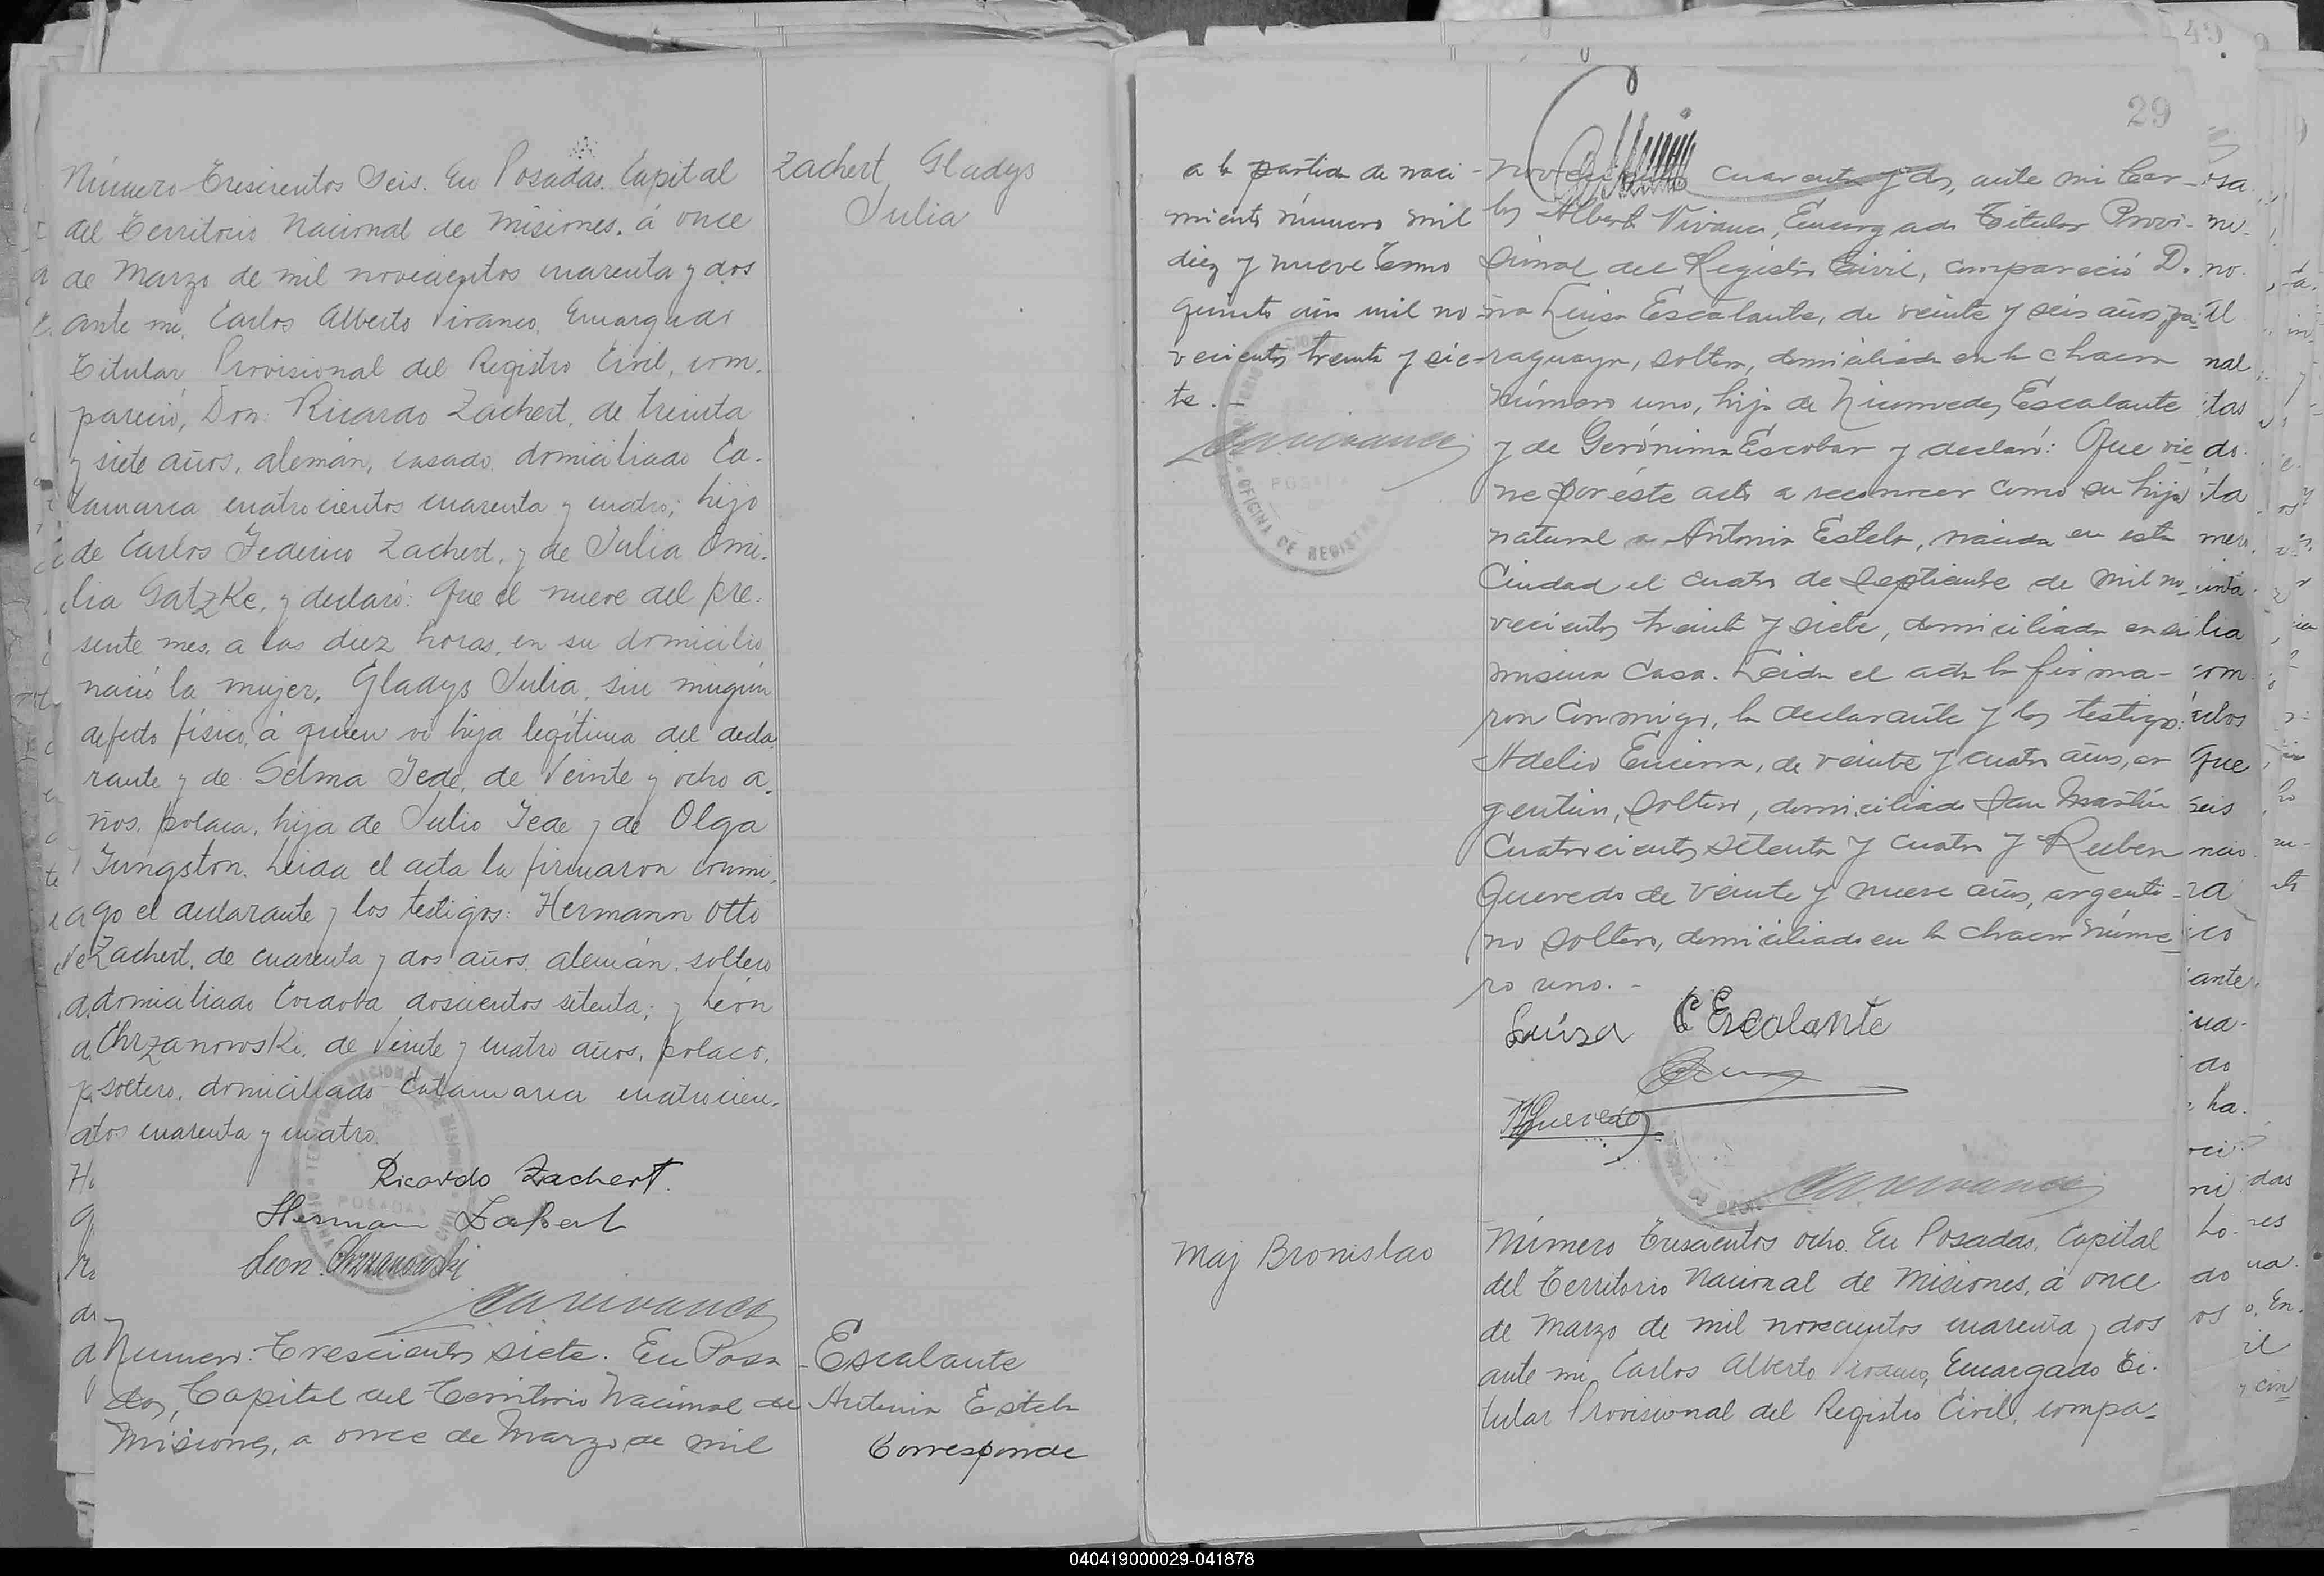 Número Trescientos Seis. En Posadas. Capital
del Territorio Nacional de Misiones. á once
de Marzo de mil novecientos cuarenta y dos
ante mi, Carlos Alberto Vivanco, Encargado
Titular Provisional del Registro Civil, com-
pareció, Don: Ricardo Zachert, de treinta
y siete años, alemán, casado, domiciliado Ca-
tamarca cuatrocientos cuarenta y cuatro; hijo
de Carlos Federico Zachert, y de Julia Emi-
lia Gatzke, y declaró: Que el nueve del pre-
sente mes, a las diez horas, en su domicilio
nació la mujer, Gladys Julia, sin ningún
defecto físico, á quien vi hija legítima del decla-
rante y de Selma Jede, de Veinte y ocho a-
ños, polaca, hija de Julio Jede y de Olga
Jungston. Leida el acta la firmaron conmi-
go el declarante y los testigos: Hermann Otto
Zachert, de cuarenta y dos años, alemán, soltero
domiciliado Cordoba doscientos setenta; y León
Chrzanowski, de Veinte y cuatro años, polaco,
soltero, domiciliado Catamarca cuatrocien-
tos cuarenta y cuatro.
Ricardo Zachert.
Hermann Zachert
Leon Chrzanowski
Zachert Gladys
Julia
Numero: Trescientos siete. En Posa-
das, Capital del Territorio Nacional de
Misiones, a once de Marzo de mil
Escalante
Antonia Estela
Corresponde
29
a la partida de naci-
miento número mil
diez y nueve Tomo
quinto año mil no-
vecientos treinta y sie-
te.-
novecientos cuarenta y dos, ante mi Car-
los Alberto Vivanco, Encargado Titular Provi-
sional del Registro Civil, compareció D.
ña Luisa Escalante, de veinte y seis años, pa-
raguaya, soltera, domiciliada en la chacra
número uno, hija de Nicomedes Escalante
y de Gerónima Escobar y declaró: Que vie-
ne por éste acto a reconocer como su hija
natural a Antonia Estela, nacida en esta
Ciudad el cuatro de Septiembre de mil no-
vecientos treinta y siete, domiciliada en su
misma casa. Leida el acta la firma-
ron conmigo, la declarante y los testigos:
Adelio Encina, de veinte y cuatro años, ar-
gentino, soltero, domiciliado San Martín
Cuatrocientos setenta y cuatro y Ruben
Quevedo de veinte y nueve años, argenti-
no soltero, domiciliado en la chacra núme-
ro uno.-
Luisa Escalante
RQuevedo
Maj Bronislao
Número Trescientos ocho. En Posadas, Capital
del Territorio Nacional de Misiones, á once
de Marzo de mil novecientos cuarenta y dos
ante mi, Carlos Alberto Vivanco, Encargado Ti-
tular Provisional del Registro Civil, compa-
040419000029-041878